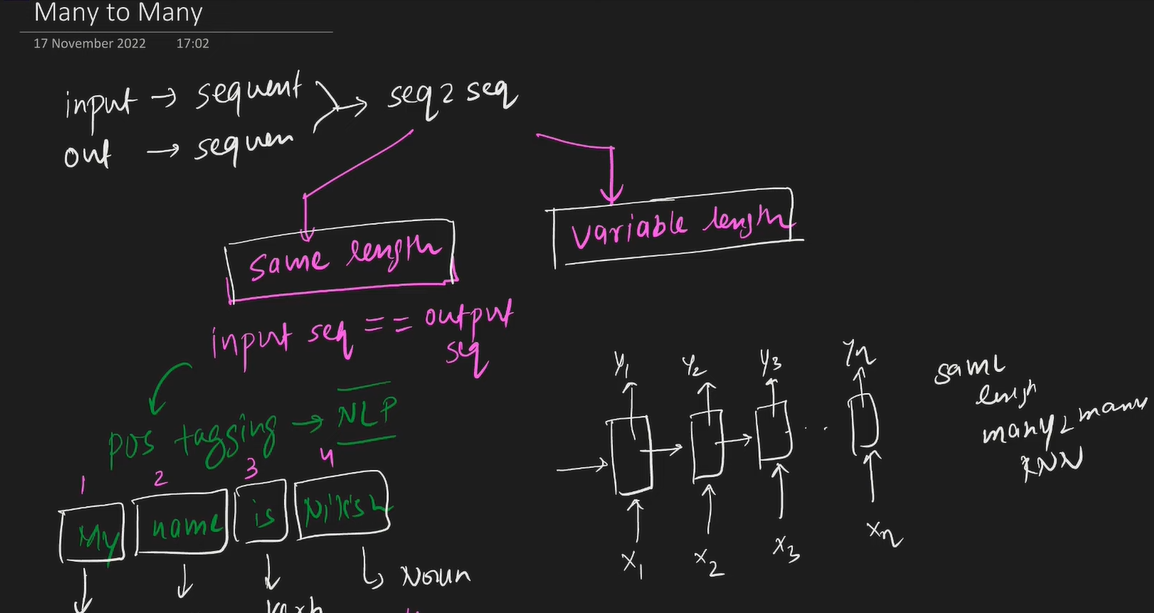 Many to Many
17 November 2022 17:02
input → sequent
out → sequen
→ seq2seq
same length
variable length
input seq == output seq
pos tagging → NLP
1 2 3 4
My name is Nitish
Noun
verb
y1 y2 y3 yn
. . .
x1 x2 x3 xn
same
length
many2many
RNN